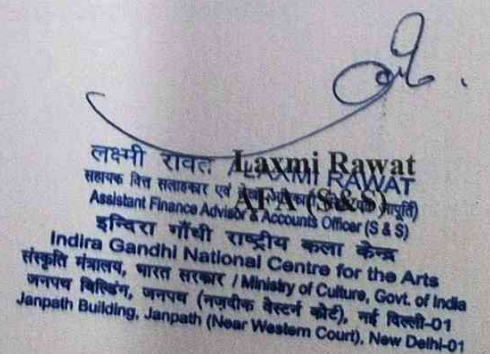 लक्ष्मी रावत / LAXMI RAWAT
Laxmi Rawat
सहायक वित्त सलाहकार एवं
AFA (S & S)
Assistant Finance Advisor & Accounts Officer (S & S)
इन्दिरा गाँधी राष्ट्रीय कला केन्द्र
Indira Gandhi National Centre for the Arts
संस्कृति मंत्रालय, भारत सरकार / Ministry of Culture, Govt. of India
जनपथ बिल्डिंग, जनपथ (नज़दीक वेस्टर्न कोर्ट), नई दिल्ली-01
Janpath Building, Janpath (Near Western Court), New Delhi-01